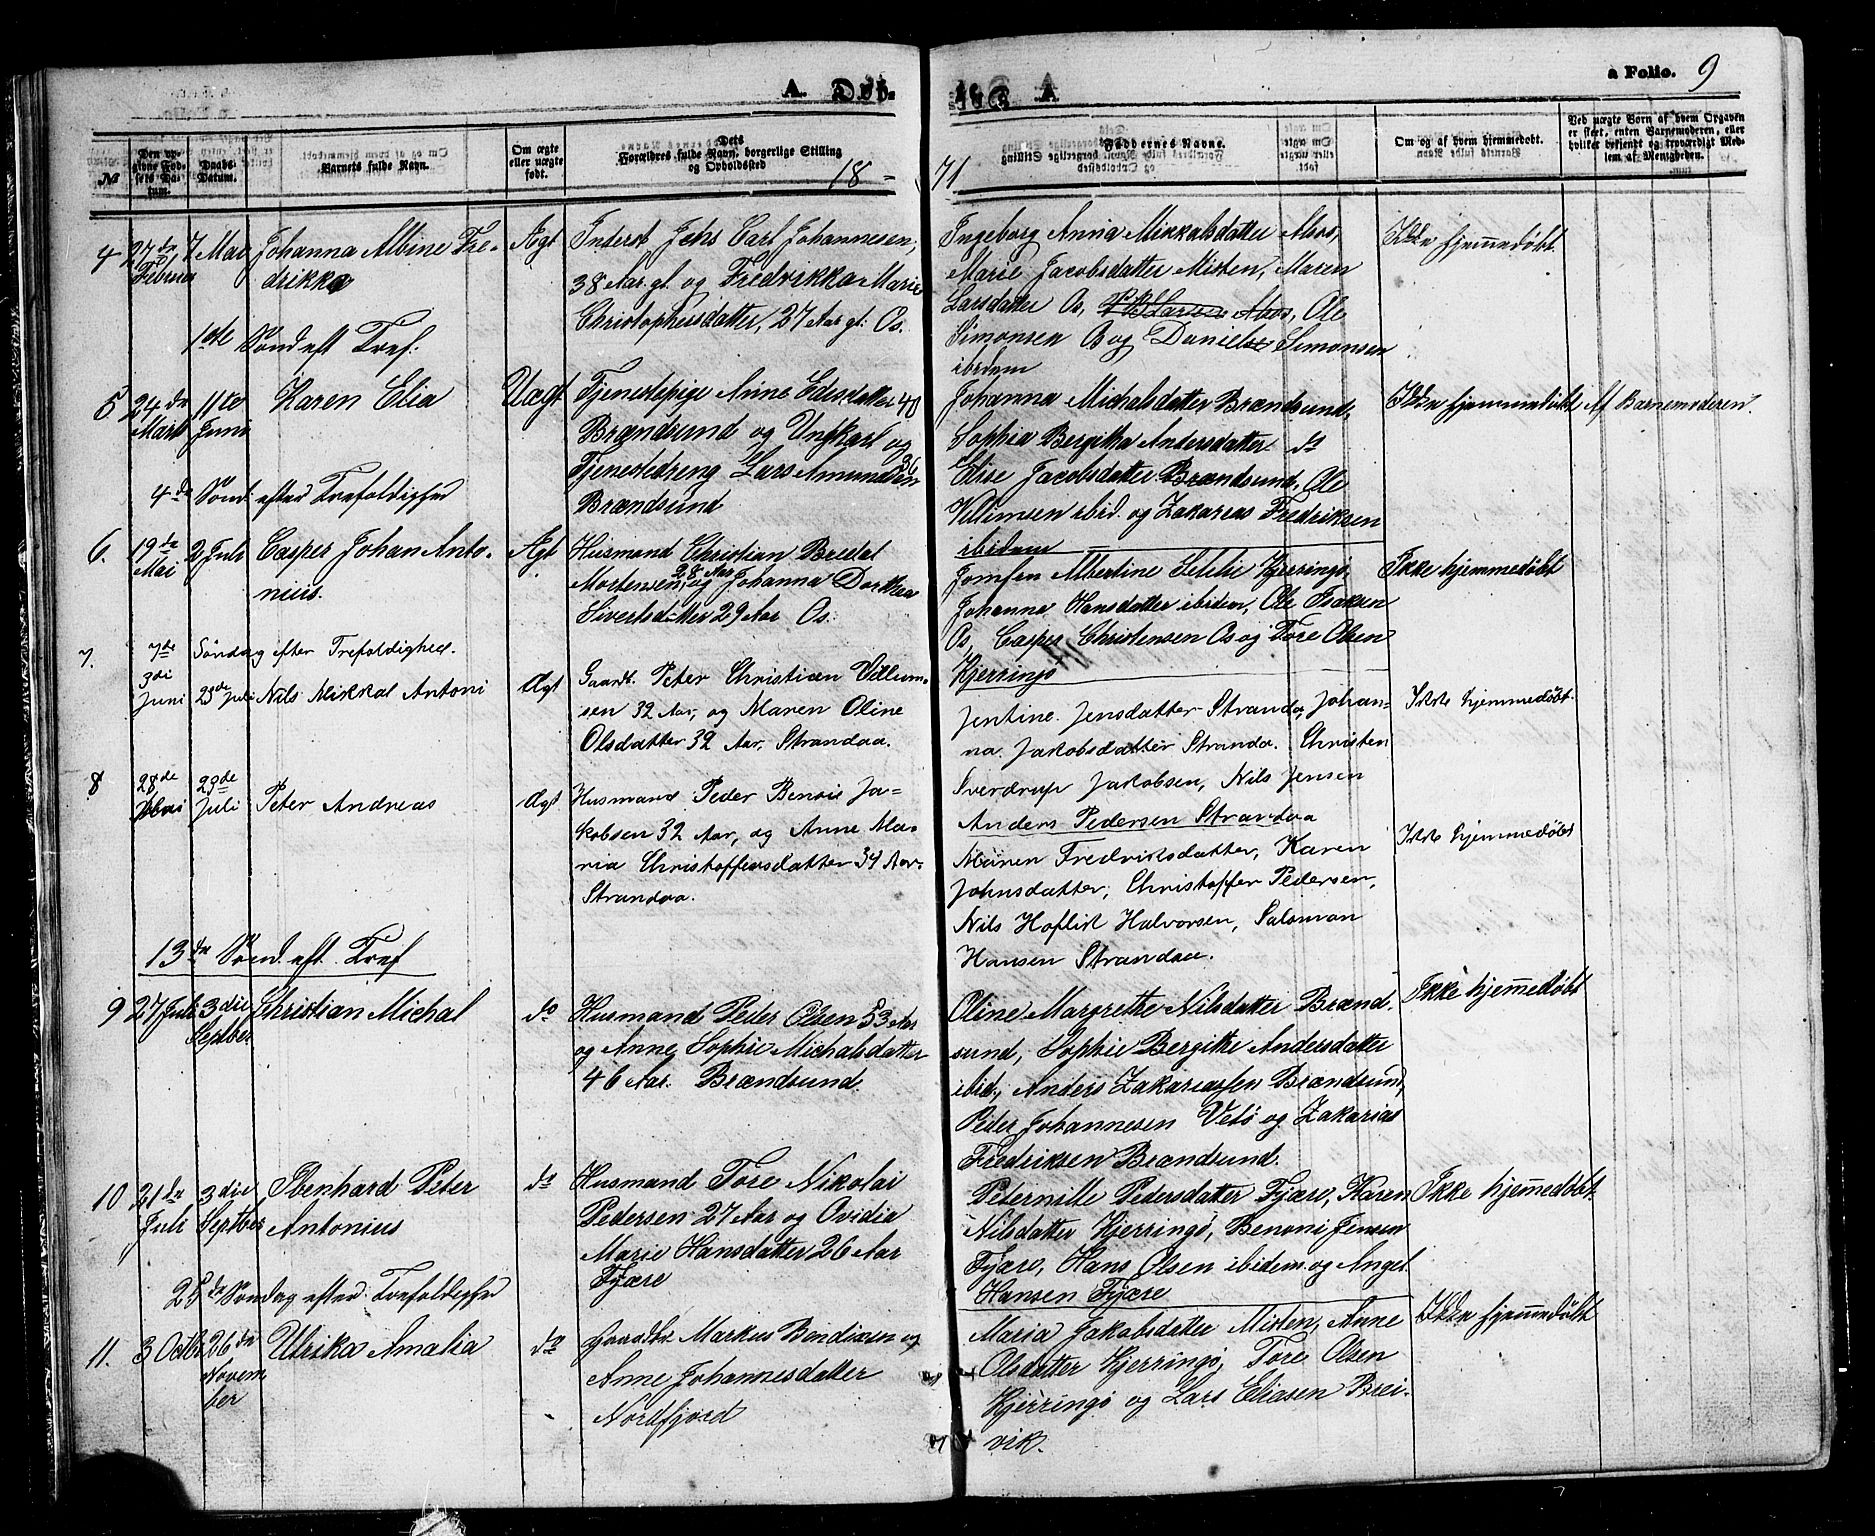 A. Døb.
a Folio. 9
№
Den opgivne Fødsels Datum.
Daabs-Datum.
Barnets fulde Navn.
Om ægte eller uægte født.
Dets Forældres fulde Navn, borgerlige Stilling og Opholdssted
18 = 71
Faddernes Navne.
Om og af hvem hjemmedøbt.
Ved uægte Børn af hvem Opgaven er skeet, enten Barnemoderen, eller hvilket bekjendt og troværdigt Medlem af Menigheden.
4 27de Februar 7 Mai Johanna Albine Fredrikka Ægt
Inderst Jens Carl Johannesen,
38 Aar gl. og Fredrikka Marie
Christophersdatter, 27 Aar gl: Os.
Ingeborg Anna Mikkalsdatter Alvos,
Marie Jacobsdatter Misten, Maren
Larsdatter Os, Ole
Simonsen Os og Daniel Simonsen
ibidem
Ikke hjemmedøbt
1ste Sønd eft Tref:
5 24de Marts 11te Juni Karen Elia Uægt
Tjenestepige Anne Edisdatter 40
Brændsund og Ungkarl og
Tjenestedreng Lars Amundsen 36
Brændsund
Johanna Michalsdatter Brændsund,
Sophia Bergitha Andersdatter do
Elise Jacobsdatter Brændsund, Ole
Villumsen ibid. og Zakarias Fredriksen
ibidem
Ikke hjemmedøbt Af Barnemoderen.
4de Sønd. efter Trefoldighed
6. 19de Mai 2 Juli Casper Johan Antonius. Ægt
Husmand Christian Bredal
Mortensen, 28 Aar og Johanna Dorthea
Sivertsdatter 29 Aar Os.
Jomfru Albertine Kjerringø,
Johanna Hansdatter ibidem, Ole Isaksen
Os, Casper Christensen Os og Tore Olsen
Kjerringø
Ikke hjemmedøbt
7de Søndag efter Trefoldighed.
7. 3di Juni 23de Juli Nils Mikkal Antoni Ægt
Gaardb. Peter Christian Villumsen
32 Aar, og Maren Oline
Olsdatter 32 Aar, Strandaa.
Jentine Jensdatter Strandaa, Johanna
Jakobsdatter Strandaa. Christen
Sverdrup Jakobsen, Nils Jensen
Anders Pedersen Strandaa
Ikke hjemmedøbt.
8 28de Mai 23de Juli Peter Andreas Ægt
Husmand Peder Benoie Jakobsen
32 Aar, og Anne Maria
Christoffersdatter 34 Aar.
Strandaa.
Maren Fredriksdatter, Karen
Johnsdatter, Christoffer Pedersen,
Nils Hoflik Halvorsen, Saloman
Hansen Strandaa.
Ikke hjemmedøbt
13de Sønd. eft. Tref
9 27 Juli 3die Septber Christian Michal do
Husmand Peder Olsen 53 Aar
og Anne Sophie Michalsdatter
46 Aar. Brændsund.
Oline Margrethe Nilsdatter Brændsund,
Sophie Bergithe Andersdatter
ibid., Anders Zakariassen Brændsund,
Peder Johannesen Vetø og Zakarias
Fredriksen Brændsund.
Ikke hjemmedøbt
10 21de Juli 3die Septber Ebenhard Peter Antonius do
Husmand Tore Nikolai
Pedersen 27 Aar og Ovidia
Marie Hansdatter 26 Aar
Fjære
Pedernille Pedersdatter Fjære, Karen
Nilsdatter Kjerringø, Benoni Jensen
Fjære, Hans Olsen ibidem og Angel
Hansen Fjære
Ikke hjemmedøbt.
25de Søndag efter Trefoldighed
11. 3 Octbr 26de November Ulrika Amalia do
Gaardbr. Markus Bendixen og
Anne Johannesdatter
Nordfjord
Maria Jakobsdatter Misten, Anne
Olsdatter Kjerringø, Tore Olsen
Kjerringø og Lars Eliasen Breivik.
Ikke hjemmedøbt